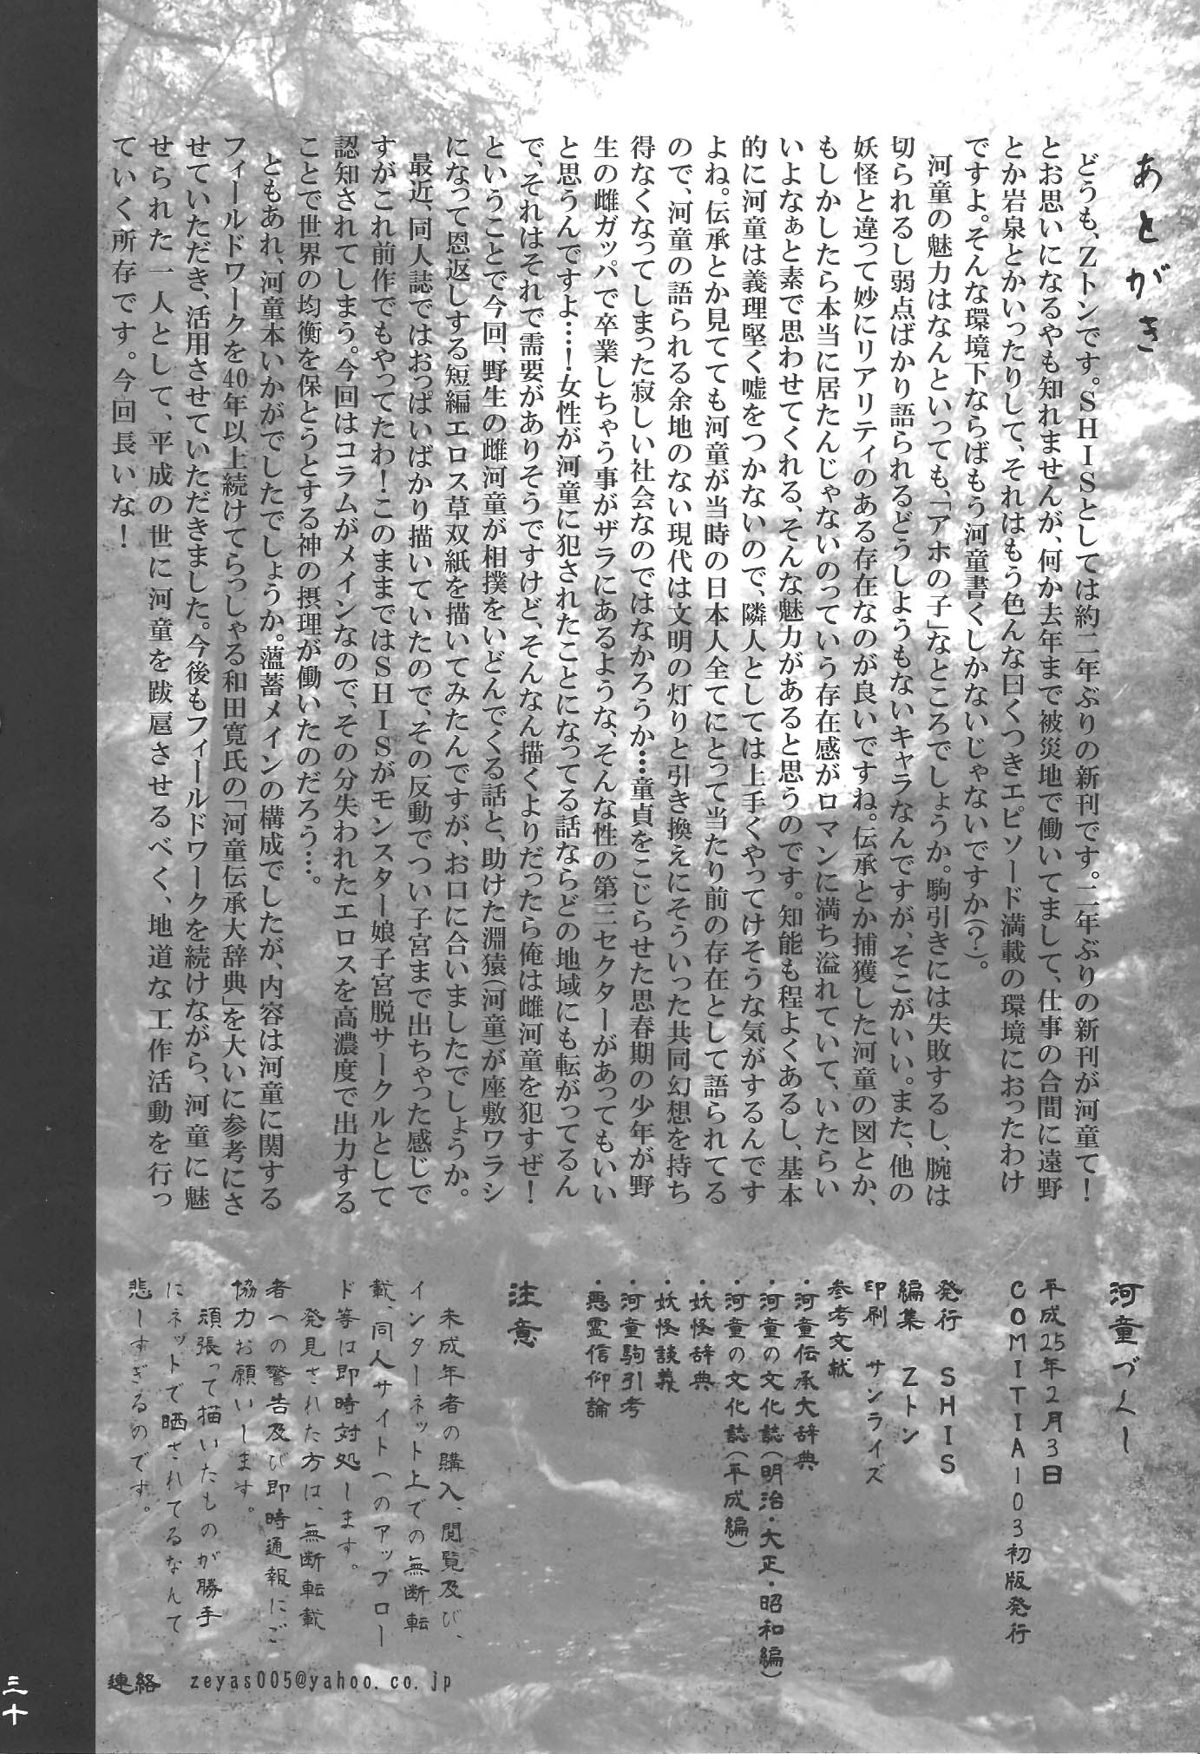 あとがき
　どうも、Ｚトンです。ＳＨＩＳとしては約二年ぶりの新刊です。二年ぶりの新刊が河童て！
とお思いになるやも知れませんが、何か去年まで被災地で働いてまして、仕事の合間に遠野
とか岩泉とかいったりして、それはもう色んな曰くつきエピソード満載の環境におったわけ
ですよ。そんな環境下ならばもう河童書くしかないじゃないですか（？）。
　河童の魅力はなんといっても、「アホの子」なところでしょうか。駒引きには失敗するし、腕は
切られるし弱点ばかり語られるどうしようもないキャラなんですが、そこがいい。また、他の
妖怪と違って妙にリアリティのある存在なのが良いですね。伝承とか捕獲した河童の図とか、
もしかしたら本当に居たんじゃないのっていう存在感がロマンに満ち溢れていて、いたらい
いよなぁと素で思わせてくれる、そんな魅力があると思うのです。知能も程よくあるし、基本
的に河童は義理堅く嘘をつかないので、隣人としては上手くやってけそうな気がするんです
よね。伝承とか見てても河童が当時の日本人全てにとって当たり前の存在として語られてる
ので、河童の語られる余地のない現代は文明の灯りと引き換えにそういった共同幻想を持ち
得なくなってしまった寂しい社会なのではなかろうか…童貞をこじらせた思春期の少年が野
生の雌ガッパで卒業しちゃう事がザラにあるような、そんな性の第三セクターがあってもいい
と思うんですよ…！女性が河童に犯されたことになってる話ならどの地域にも転がってるん
で、それはそれで需要がありそうですけど、そんなん描くよりだったら俺は雌河童を犯すぜ！
ということで今回、野生の雌河童が相撲をいどんでくる話と、助けた淵猿（河童）が座敷ワラシ
になって恩返しする短編エロス草双紙を描いてみたんですが、お口に合いましたでしょうか。
　最近、同人誌ではおっぱいばかり描いていたので、その反動でつい子宮まで出ちゃった感じで
すがこれ前作でもやってたわ！このままではＳＨＩＳがモンスター娘子宮脱サークルとして
認知されてしまう。今回はコラムがメインなので、その分失われたエロスを高濃度で出力する
ことで世界の均衡を保とうとする神の摂理が働いたのだろう…。
　ともあれ、河童本いかがでしたでしょうか。薀蓄メインの構成でしたが、内容は河童に関する
フィールドワークを40年以上続けてらっしゃる和田寛氏の「河童伝承大辞典」を大いに参考にさ
せていただき、活用させていただきました。今後もフィールドワークを続けながら、河童に魅
せられた一人として、平成の世に河童を跋扈させるべく、地道な工作活動を行っ
ていく所存です。今回長いな！
河童づくし
平成25年2月3日
ＣＯＭＩＴＩＡ103初版発行
発行　ＳＨＩＳ
編集　Ｚトン
印刷　サンライズ
参考文献
・河童伝承大辞典
・河童の文化誌（明治・大正・昭和編）
・河童の文化誌（平成編）
・妖怪辞典
・妖怪談義
・河童駒引考
・悪霊信仰論
注意
　未成年者の購入、閲覧及び、
インターネット上での無断転
載、同人サイトへのアップロー
ド等は即時対処します。
　発見された方は、無断転載
者への警告及び即時通報にご
協力お願いします。
　頑張って描いたものが勝手
にネットで晒されてるなんて
悲しすぎるのです。
連絡　zeyas005@yahoo.co.jp
三十